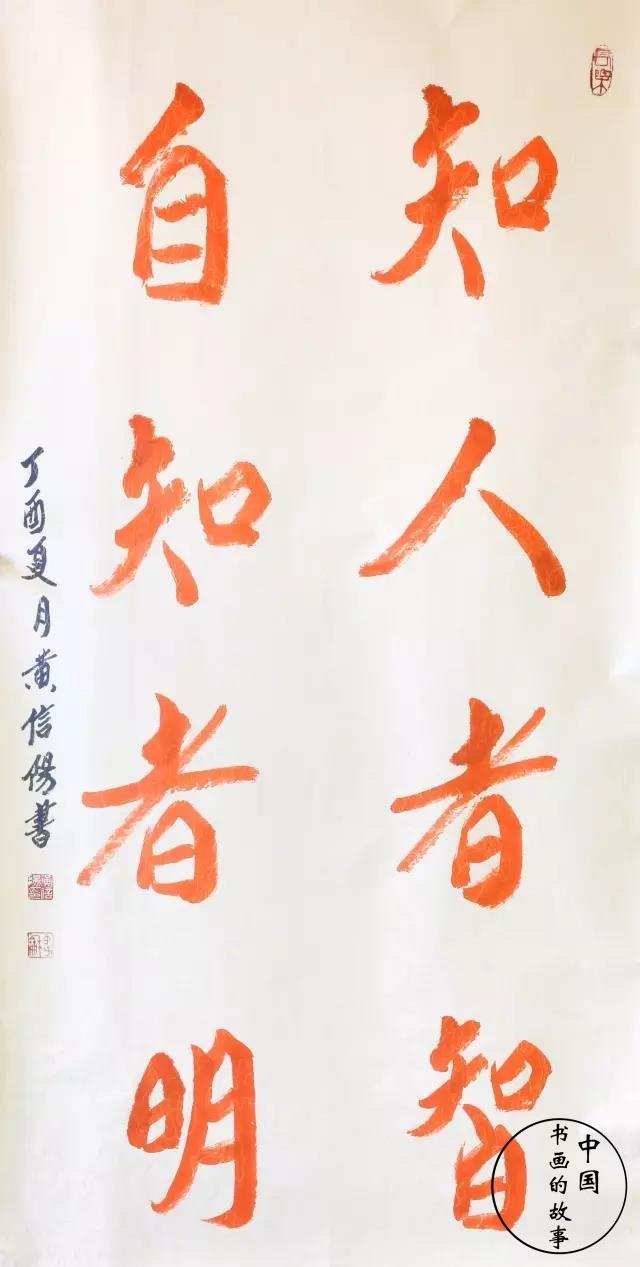 知人者智
自知者明
丁酉夏月黄信傷書
中国
书画的故事